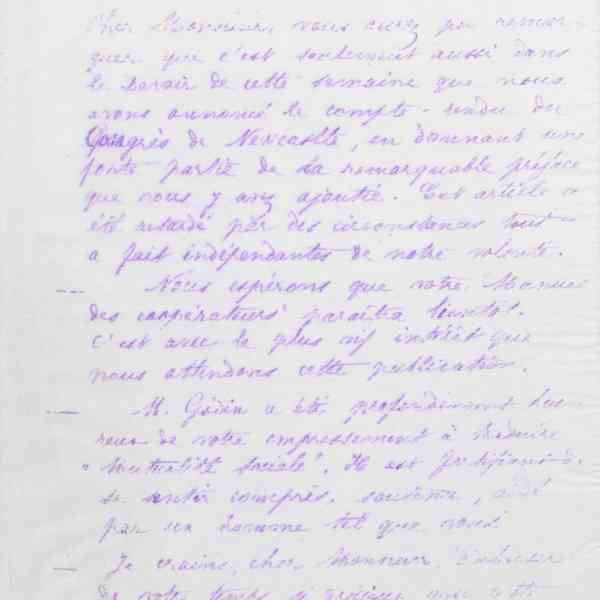 Cher Monsieur, vous aurez pu remar-
quer que c'est seulement aussi dans
le Devoir de cette semaine que nous
avons annoncé le compte-rendu du
Congrès de Newcastle, en donnant une
forte partie de la remarquable préface
que vous y avez ajoutée. Cet article a
été retardé par des circonstances tout-
à fait indépendantes de notre volonté.
Nous espérons que votre Manuel
des coopérateurs paraîtra bientôt.
C'est avec le plus vif intérêt que
nous attendons cette publication.
M. Godin a été profondément heu-
reux de votre empressement à traduire
"Mutualité sociale". Il est si
se sentir compris, soutenu, aidé
par un homme tel que vous
Je crains, cher Monsieur, d'abuser
de votre temps si précieux avec cette